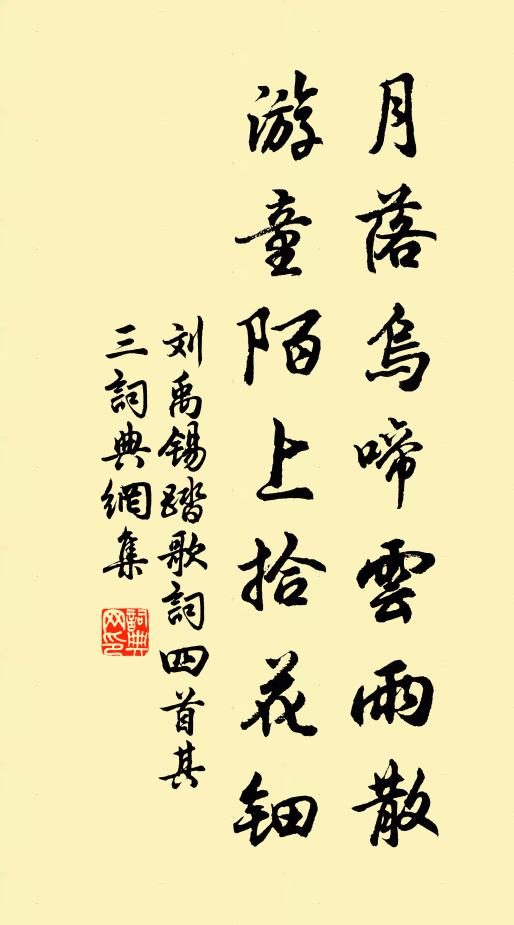 月落烏啼雲雨散
游童陌上拾花鈿
刘禹锡踏歌詞四首其
三詞典網集
詞典
网印